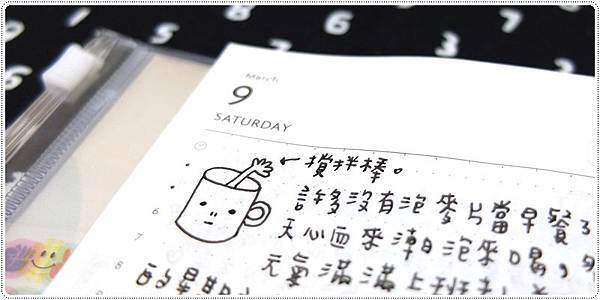 March
9
SATURDAY
←攪拌棒。
許多沒有泡麥片當早餐了
6
天心血來潮泡來喝,
7
元氣滿滿上班
8
的星期